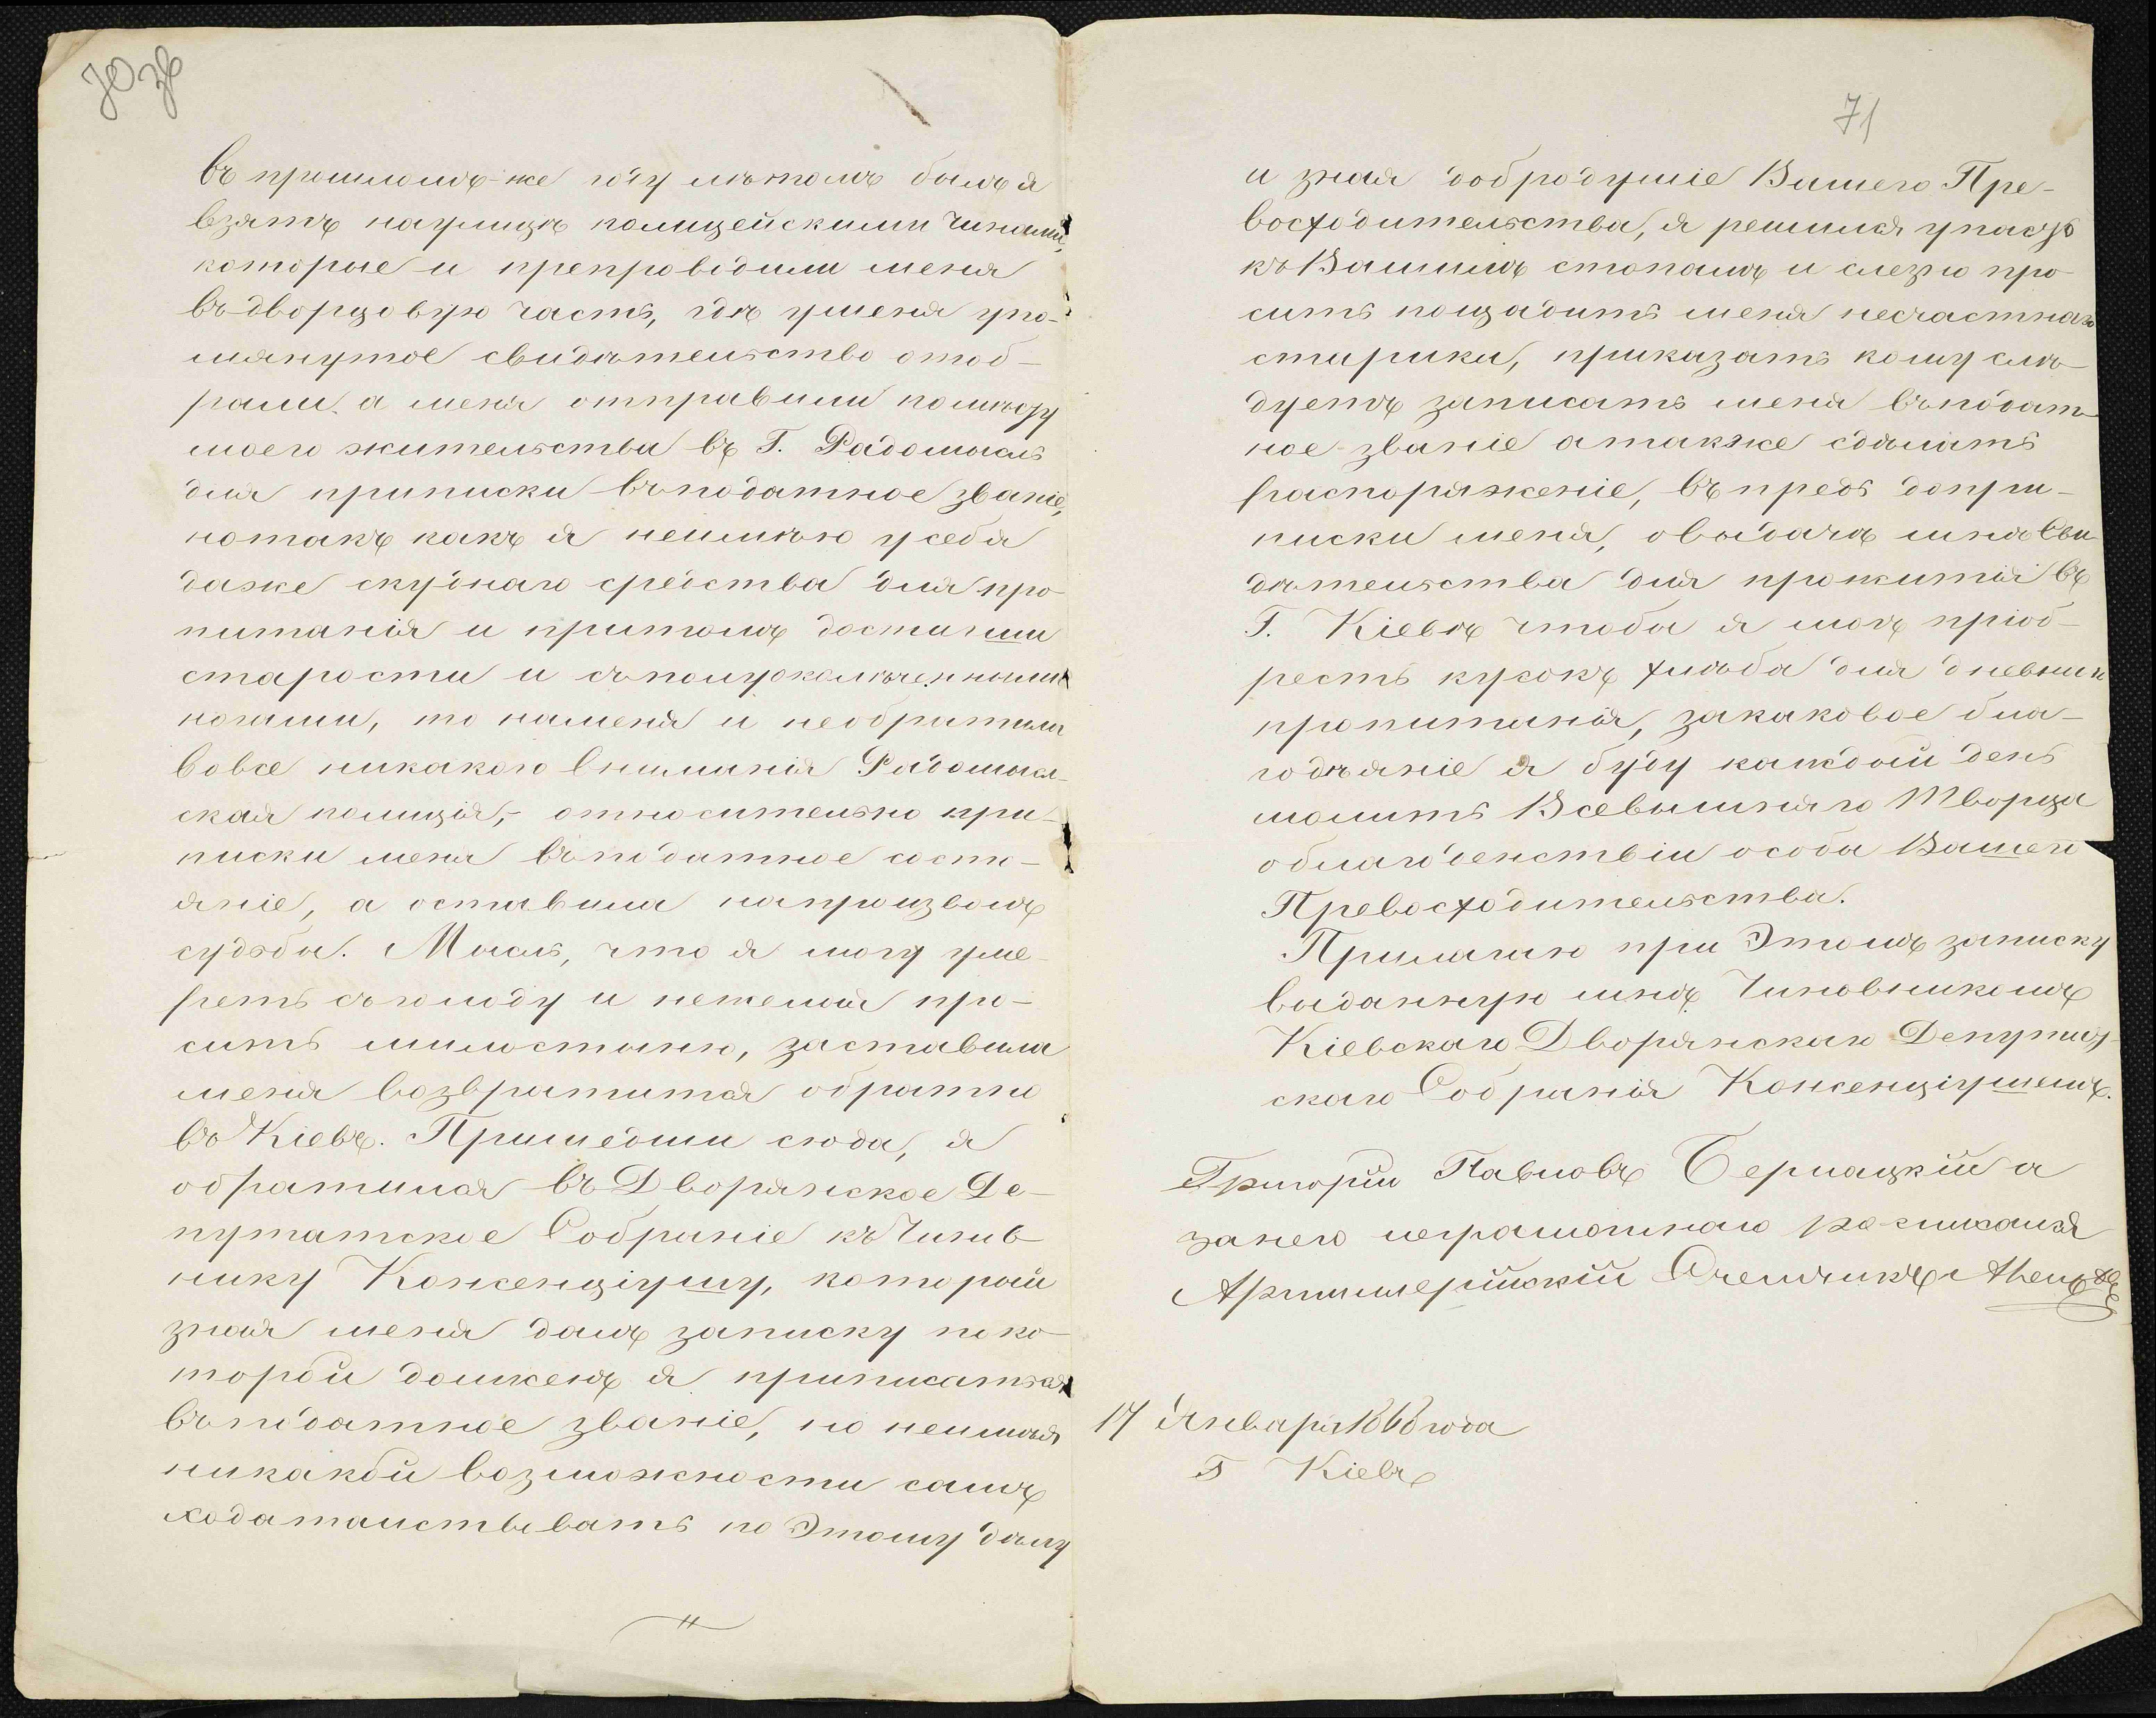 70 зв
въ прошломъ-же году лѣтомъ былъ я
взятъ наулицѣ полицейскими чинами,
которые и препроводили меня
въ дворцовую часть, гдѣ уменя упо-
мянутое свидѣтельство отоб-
рали, а меня отправили помѣсту
моего жительства въ Г. Радомысль
для приписки въподатное званіе,
нотакъ какъ я неимѣю усебя
даже скуднаго средства для про-
питанія и притомъ достигши
старости и съполуокалѣченными
ногами, то наменя и необратила
вовсе никакого вниманія Радомысль-
ская полиція, относительно при-
писки меня въподатное состо-
яніе, а оставила напроизволъ
судьбы. Мысль, что я могу уме-
реть съголоду и нежелая про-
сить милостыню, заставила
меня возвратится обратно
въ Кіевъ. Пришедши сюда, я
обратился въ Дворянское Де-
путатское Собраніе къ Чинов-
нику Конженціушу, который
зная меня далъ записку поко-
торой долженъ я приписатся
въподатное званіе, но неимѣя
никакой возможности самъ
ходатаиствывать по Этому дѣлу
71
и зная добродушіе Вашего Пре-
восходительства, я решился упасть
къ Вашимъ стопамъ и слезно про-
сить пощадить меня несчастнаго
старика, приказать кому слѣ-
дуетъ записать меня въподат-
ное-званіе атакже сдѣлать
распоряженіе, въпредь допри-
писки меня, овыдачѣ мнѣ Сви-
дѣтельства для прожитія въ
Г. Кіевѣ чтобы я могъ пріоб-
ресть кусокъ хлѣба для дневнаго
пропитанія, закаковое бла-
годѣяніе я буду каждый день
молить Всевышняго Творца
облагоденствіи особы Вашего
Превосходительства.
Прилагаю при Этомъ записку
выданную мнѣ Чиновникомъ
Кіевскаго Дворянскаго Депутат-
скаго Собранія Конженціушемъ.
Григорій Павловъ Бернацкій а
занего неграмотнаго росписался
Артиллерійскій
17 Января 1868 года
Г Кіевъ